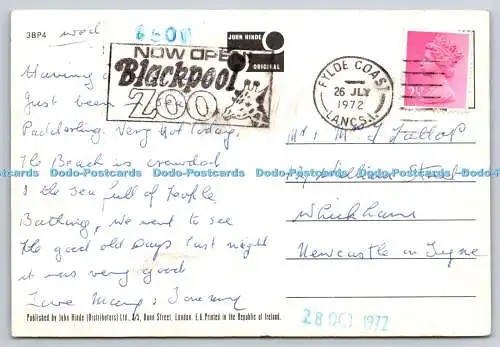 3BP4
wed
6500
JOHN HINDE
ORIGINAL
NOW OPEN
Blackpool
ZOO
FYLDE COAST
26 JLY
1972
LANCS.
Having a
just been
Paddling. Very hot today.
The Beach is crowded
& the sea full of People
Bathing, we went to see
The good old Days last night
it was very good
Love Mary &
Mr. & M
William Street
Whickham
Newcastle on Tyne
Published by John Hinde (Distributors) Ltd., Street, London. Printed in the Republic of Ireland.
28 OCT 1972
Dodo-Postcards Dodo-Postcards Dodo-Postcards Dodo-Postcards Dodo-Postcards